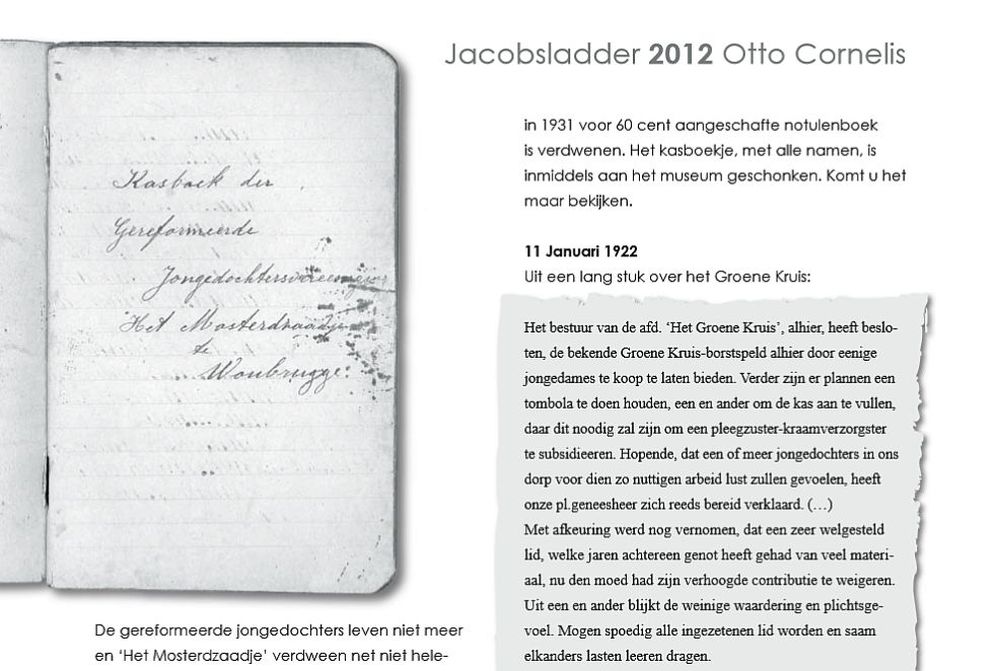 Jacobsladder 2012 Otto Cornelis
Kasboek der
Gereformeerde
Jongedochtersvereeniging
Het Mosterdzaadje
te
Woubrugge.
De gereformeerde jongedochters leven niet meer
en ‘Het Mosterdzaadje’ verdween net niet hele-
in 1931 voor 60 cent aangeschafte notulenboek
is verdwenen. Het kasboekje, met alle namen, is
inmiddels aan het museum geschonken. Komt u het
maar bekijken.
11 Januari 1922
Uit een lang stuk over het Groene Kruis:
Het bestuur van de afd. ‘Het Groene Kruis’, alhier, heeft beslo-
ten, de bekende Groene Kruis-borstspeld alhier door eenige
jongedames te koop te laten bieden. Verder zijn er plannen een
tombola te doen houden, een en ander om de kas aan te vullen,
daar dit noodig zal zijn om een pleegzuster-kraamverzorgster
te subsidieeren. Hopende, dat een of meer jongedochters in ons
dorp voor dien zo nuttigen arbeid lust zullen gevoelen, heeft
onze pl.geneesheer zich reeds bereid verklaard. (…)
Met afkeuring werd nog vernomen, dat een zeer welgesteld
lid, welke jaren achtereen genot heeft gehad van veel materi-
aal, nu den moed had zijn verhoogde contributie te weigeren.
Uit een en ander blijkt de weinige waardering en plichtsge-
voel. Mogen spoedig alle ingezetenen lid worden en saam
elkanders lasten leeren dragen.